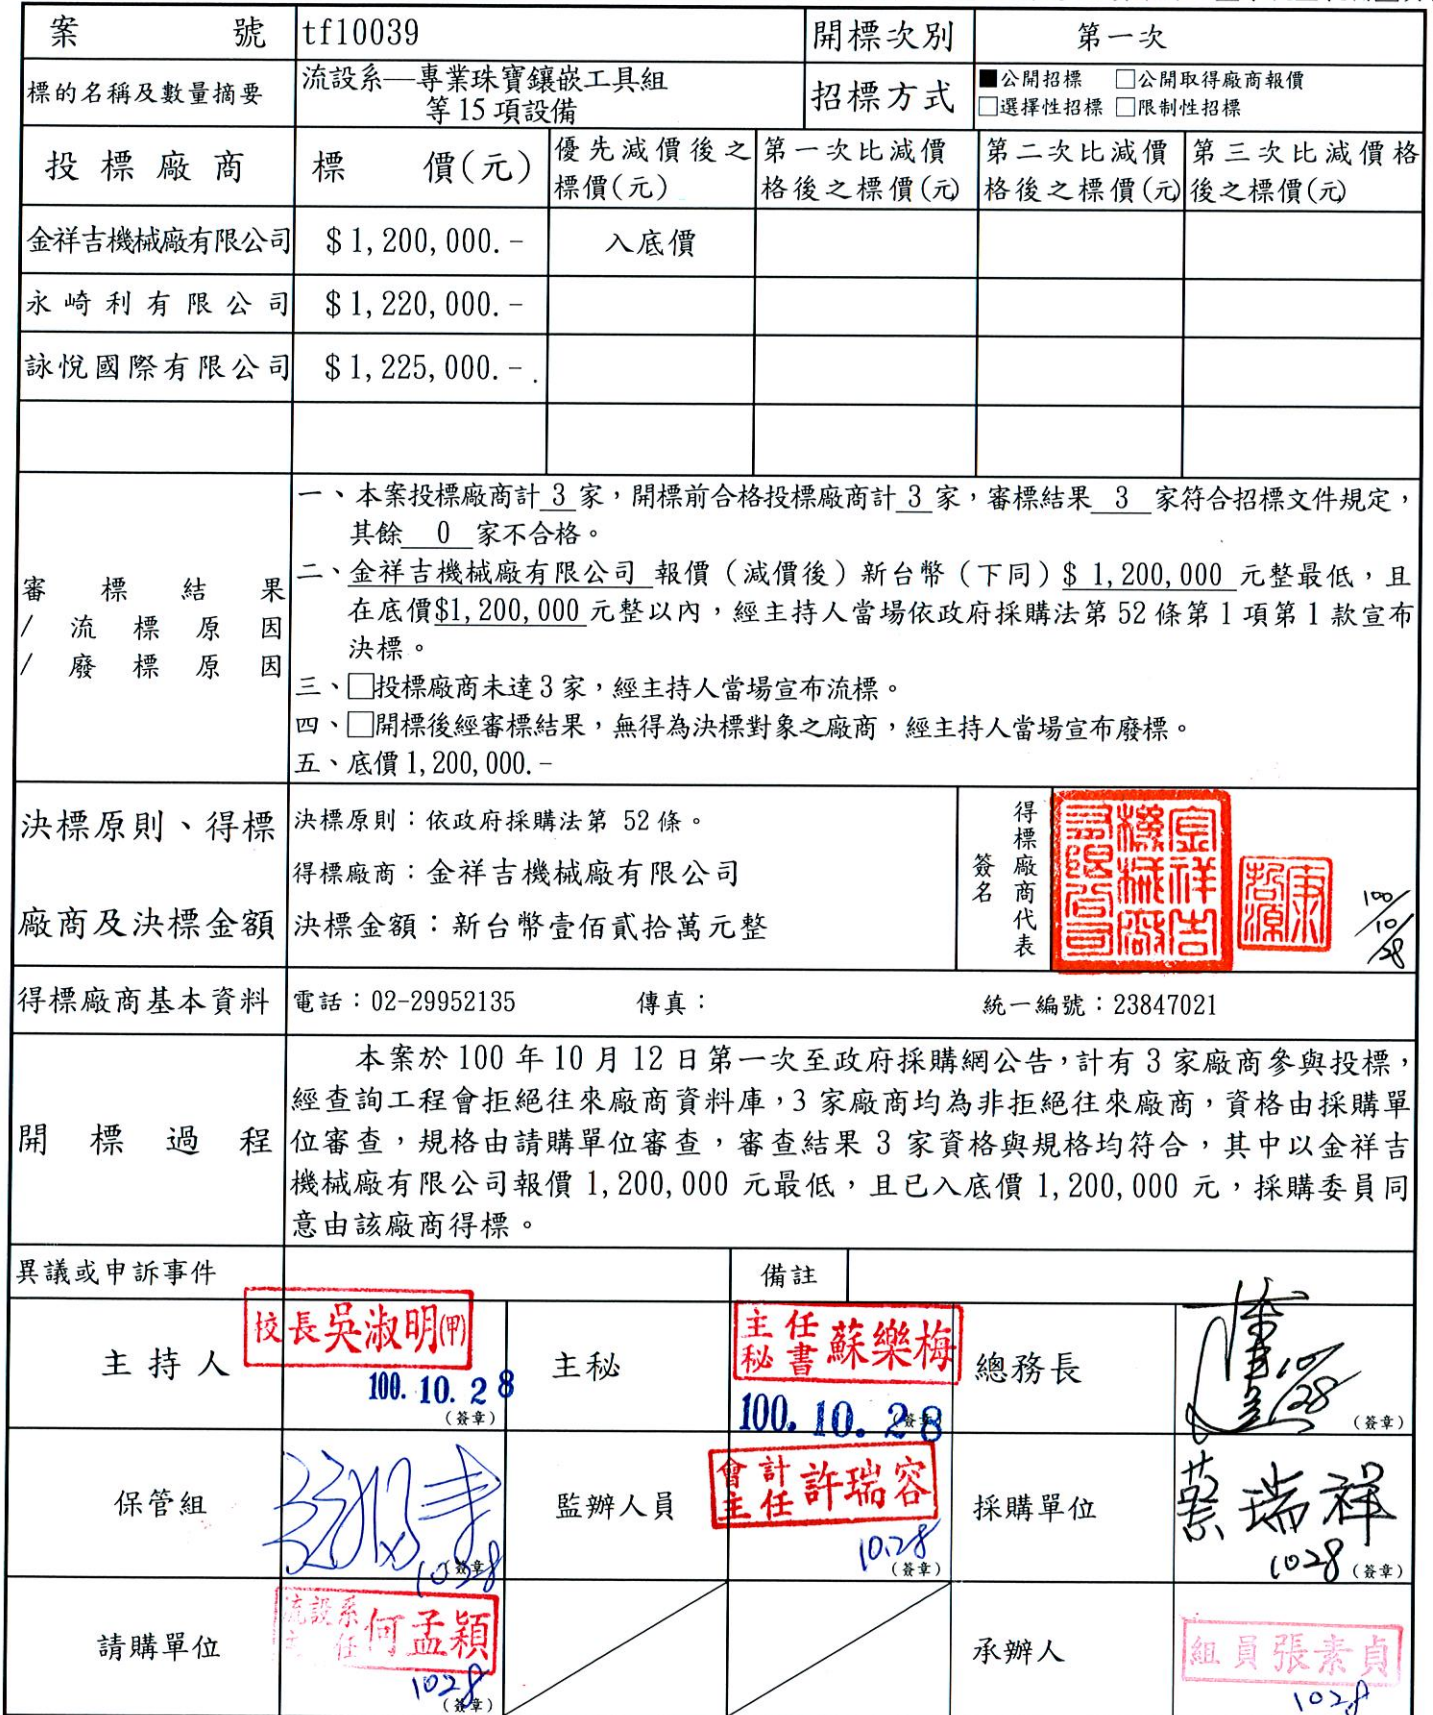 案 號 tf10039 開標次別 第一次
標的名稱及數量摘要 流設系──專業珠寶鑲嵌工具組
等 15 項設備
招標方式 ■公開招標 □公開取得廠商報價
□選擇性招標 □限制性招標
投標廠商 標 價(元) 優先減價後之標價(元) 第一次比減價格後之標價(元) 第二次比減價格後之標價(元) 第三次比減價格後之標價(元)
金祥吉機械廠有限公司 $1,200,000.- 入底價
永崎利有限公司 $1,220,000.-
詠悅國際有限公司 $1,225,000.-
審標結果
/流標原因
/廢標原因
一、本案投標廠商計 3 家，開標前合格投標廠商計 3 家，審標結果 3 家符合招標文件規定，
其餘 0 家不合格。
二、金祥吉機械廠有限公司 報價（減價後）新台幣（下同）$ 1,200,000 元整最低，且
在底價$1,200,000 元整以內，經主持人當場依政府採購法第 52 條第 1 項第 1 款宣布
決標。
三、□投標廠商未達 3 家，經主持人當場宣布流標。
四、□開標後經審標結果，無得為決標對象之廠商，經主持人當場宣布廢標。
五、底價 1,200,000.-
決標原則、得標
廠商及決標金額
決標原則：依政府採購法第 52 條。
得標廠商：金祥吉機械廠有限公司
決標金額：新台幣壹佰貳拾萬元整
得標廠商代表
簽名
金祥吉機械廠有限公司
100/10/28
得標廠商基本資料 電話：02-29952135 傳真： 統一編號：23847021
開標過程
本案於 100 年 10 月 12 日第一次至政府採購網公告，計有 3 家廠商參與投標，
經查詢工程會拒絕往來廠商資料庫，3 家廠商均為非拒絕往來廠商，資格由採購單
位審查，規格由請購單位審查，審查結果 3 家資格與規格均符合，其中以金祥吉
機械廠有限公司報價 1,200,000 元最低，且已入底價 1,200,000 元，採購委員同
意由該廠商得標。
異議或申訴事件 備註
主持人 校長吳淑明(甲)
100.10.28
（簽章）
主秘 主任秘書 蘇樂梅
100.10.28
（簽章）
總務長
10/28
（簽章）
保管組
1028
（簽章）
監辦人員 會計主任 許瑞容
10.28
（簽章）
採購單位 蔡瑞祥
1028
（簽章）
請購單位 流設系主任 何孟穎
1028
（簽章）
承辦人 組員張素貞
1028